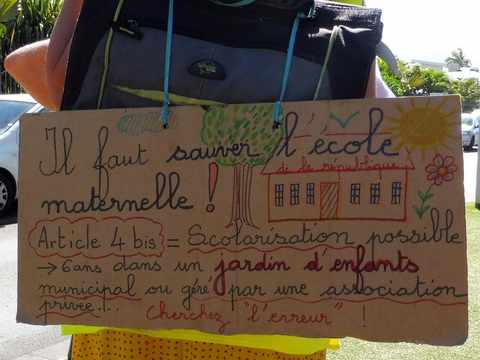 Il faut sauver l'école
de la république
maternelle !
Article 4 bis = Scolarisation possible
→ 6 ans dans un jardin d'enfants
municipal ou géré par une association
privée...
Cherchez "l'erreur" !